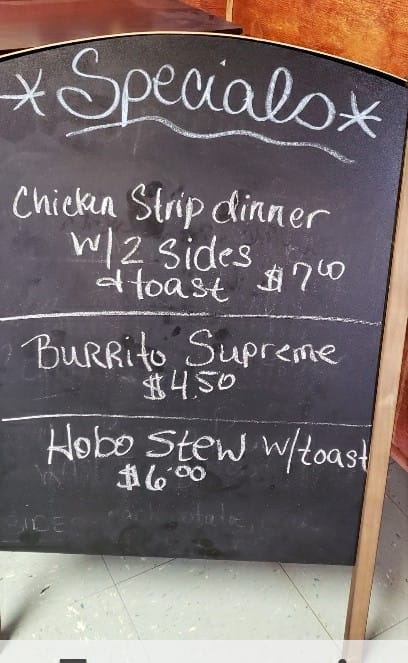 *Specials*
Chicken Strip dinner
W/2 Sides
& toast $7.00
Burrito Supreme
$4.50
Hobo Stew w/toast
$6.00